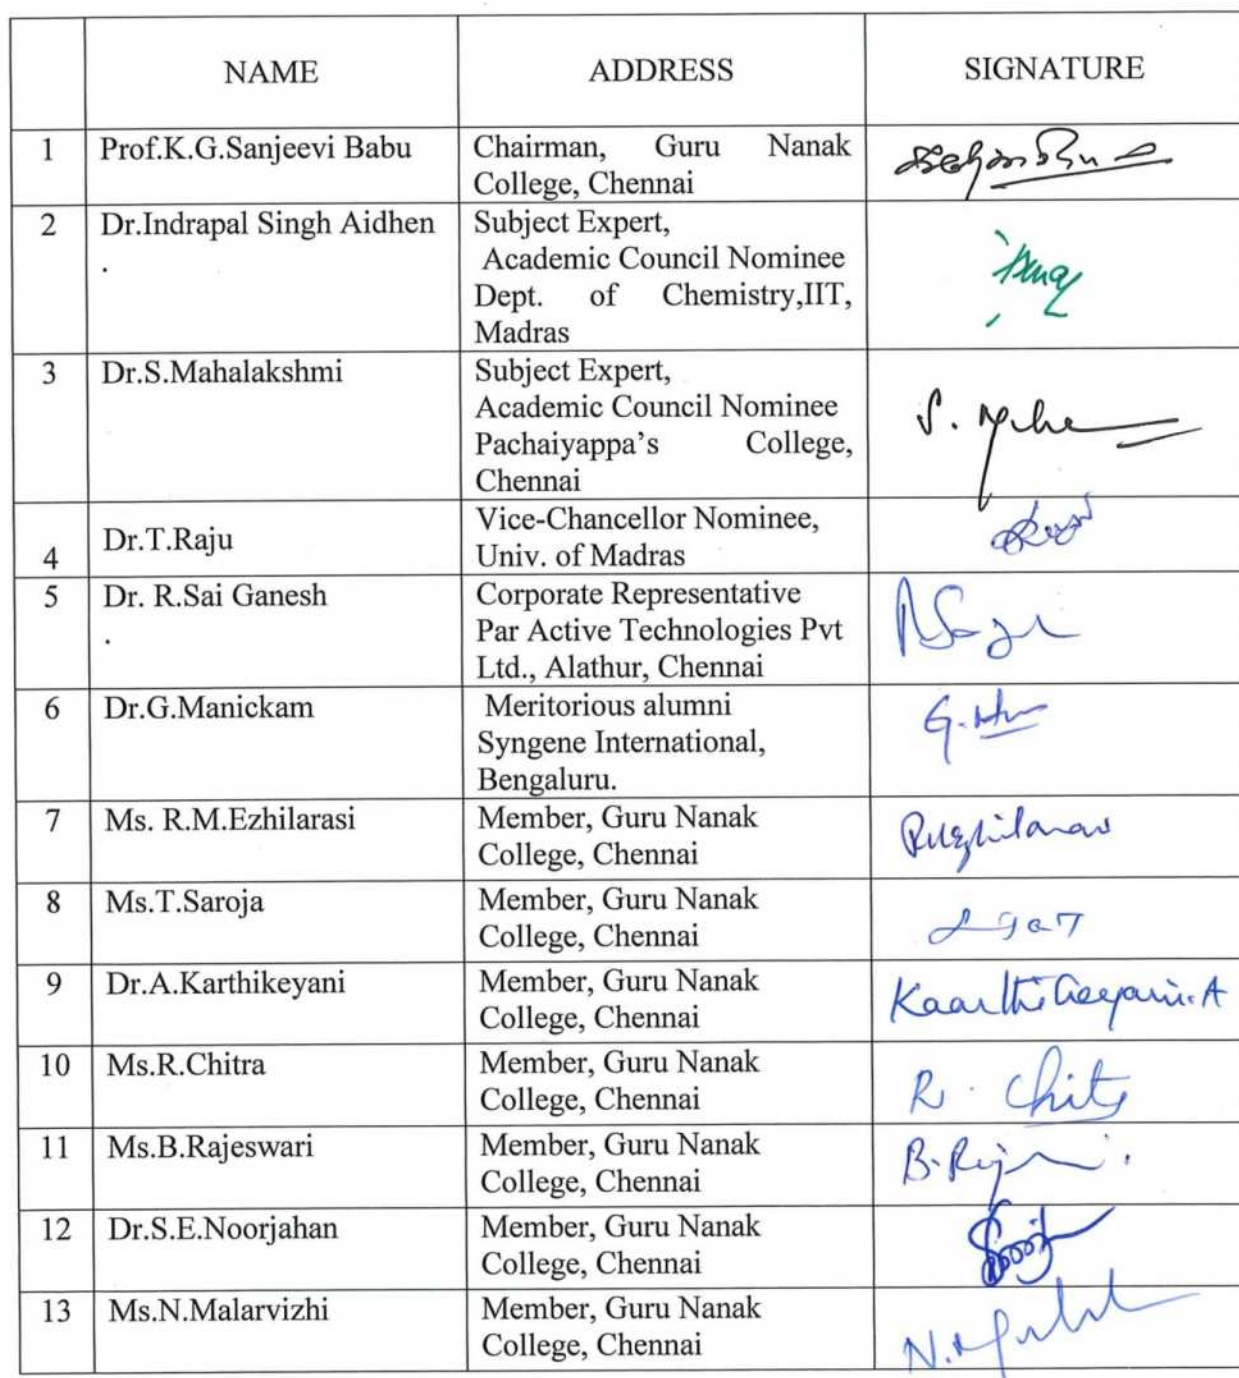 NAME ADDRESS SIGNATURE
1 Prof.K.G.Sanjeevi Babu Chairman, Guru Nanak
College, Chennai
2 Dr.Indrapal Singh Aidhen Subject Expert,
. Academic Council Nominee
Dept. of Chemistry,IIT,
Madras
3 Dr.S.Mahalakshmi Subject Expert,
Academic Council Nominee
Pachaiyappa's College,
Chennai
S.
4 Dr.T.Raju Vice-Chancellor Nominee,
Univ. of Madras
5 Dr. R.Sai Ganesh Corporate Representative
. Par Active Technologies Pvt
Ltd., Alathur, Chennai
6 Dr.G.Manickam Meritorious alumni
Syngene International,
Bengaluru.
G.
7 Ms. R.M.Ezhilarasi Member, Guru Nanak
College, Chennai
8 Ms.T.Saroja Member, Guru Nanak
College, Chennai
9 Dr.A.Karthikeyani Member, Guru Nanak
College, Chennai
Kaarthikeyani.A
10 Ms.R.Chitra Member, Guru Nanak
College, Chennai
R.
11 Ms.B.Rajeswari Member, Guru Nanak
College, Chennai
B.
12 Dr.S.E.Noorjahan Member, Guru Nanak
College, Chennai
13 Ms.N.Malarvizhi Member, Guru Nanak
College, Chennai
N.